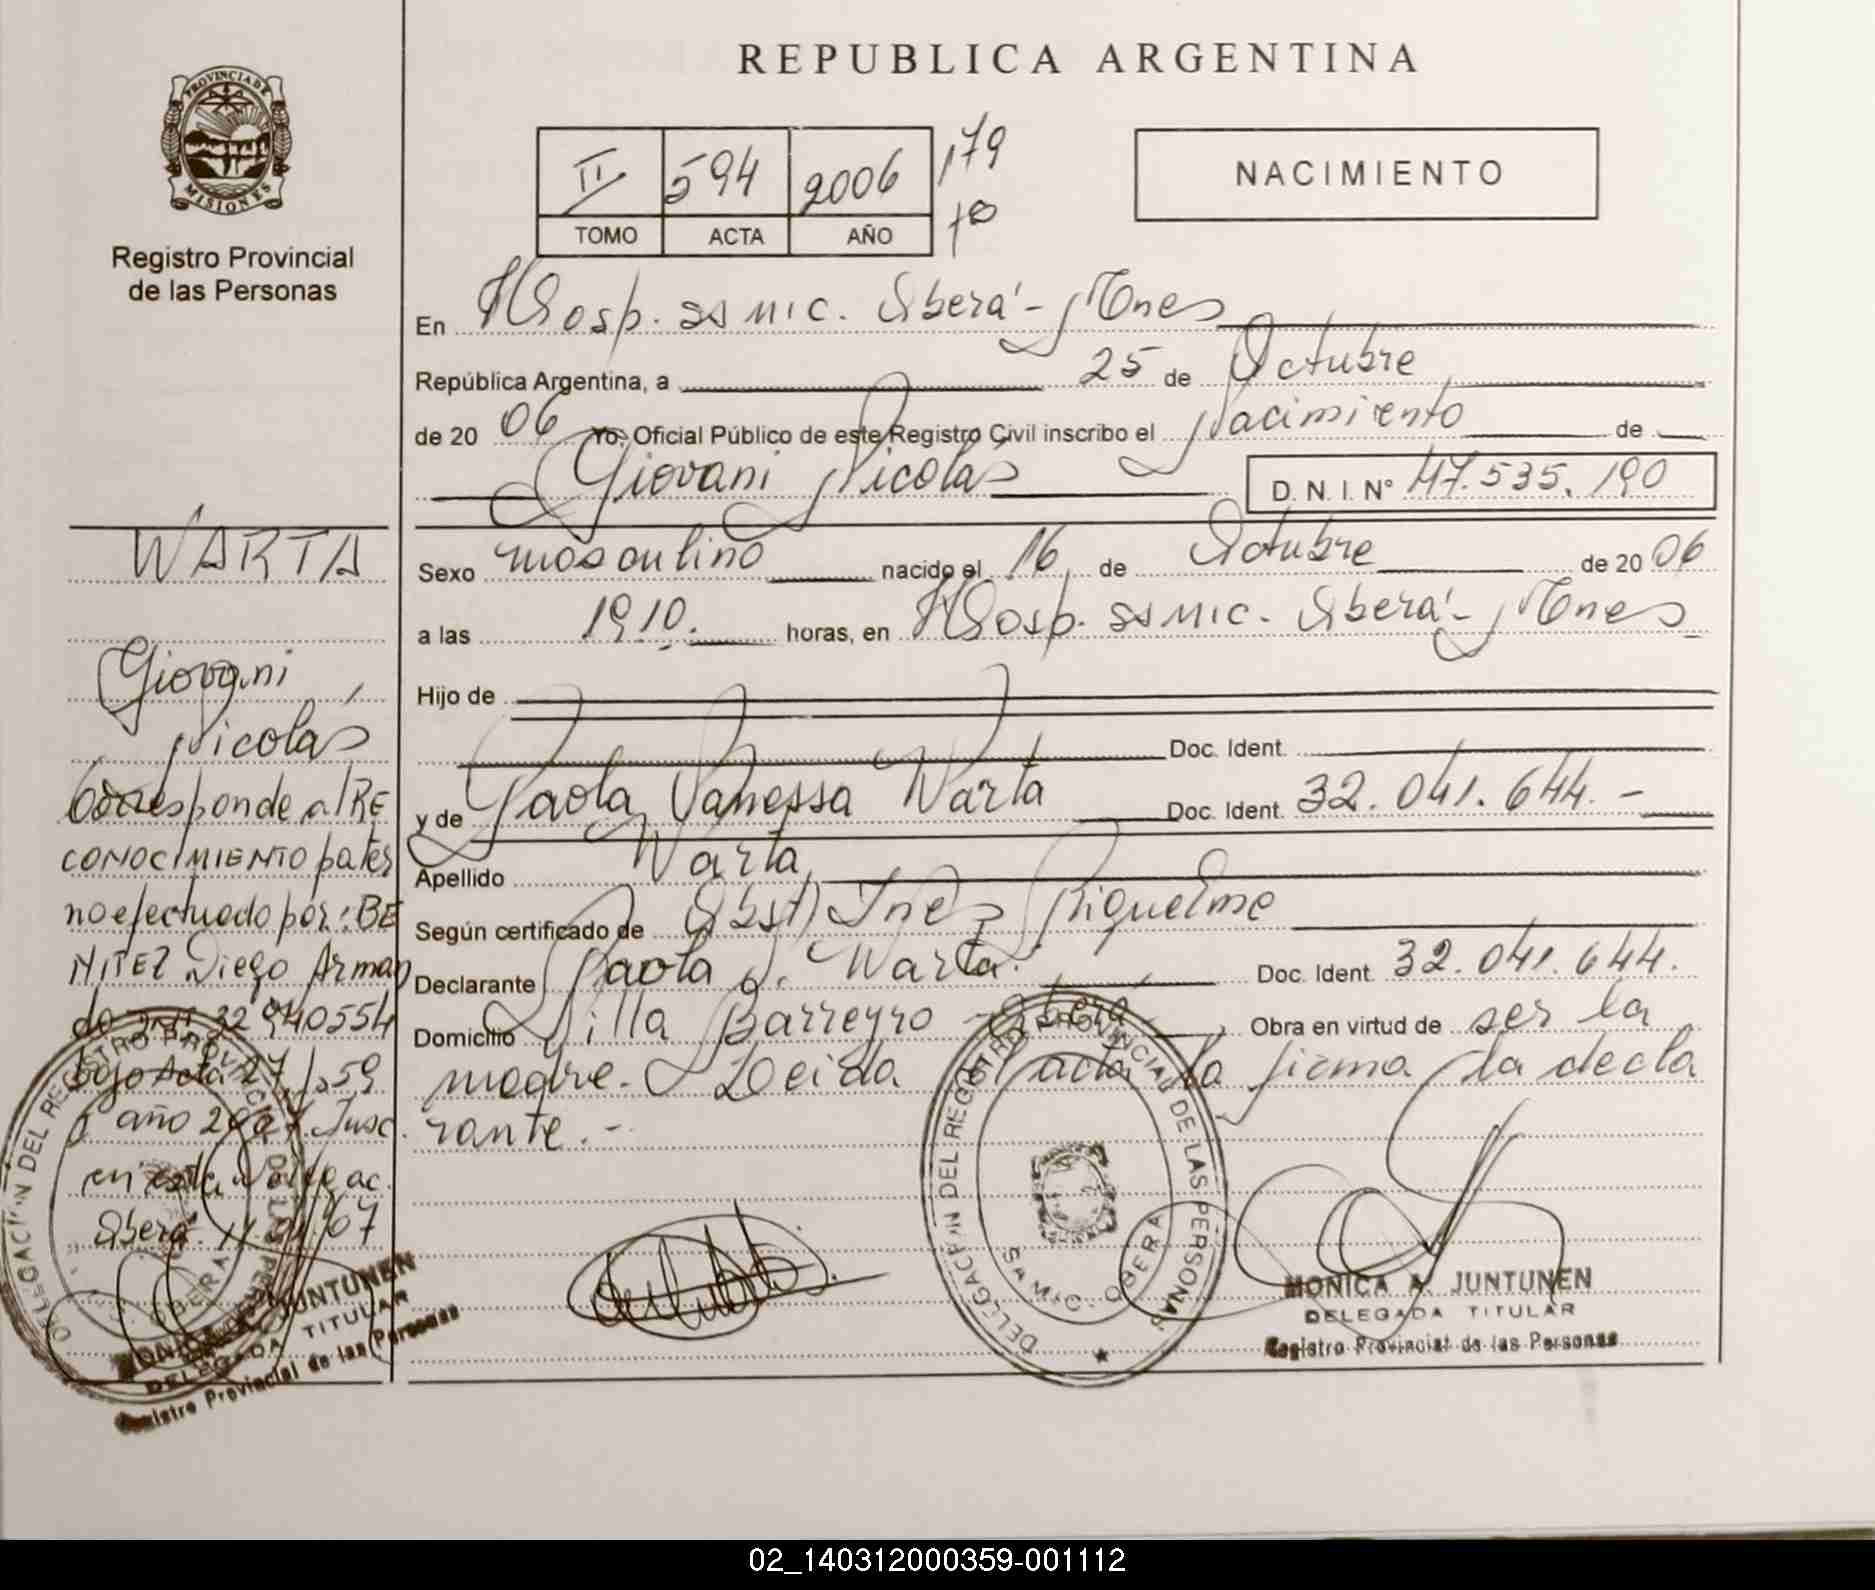 PROVINCIA DE
MISIONES
Registro Provincial
de las Personas
REPUBLICA ARGENTINA
II 594 2006 179
TOMO ACTA AÑO
NACIMIENTO
En Hosp. ss mic. Oberá - Mnes
República Argentina, a 25 de Octubre
de 20 06 Yo, Oficial Público de este Registro Civil inscribo el Nacimiento de
Giovani Nicolas D. N. I. Nº 47.535.190
Sexo masculino nacido el 16 de Octubre de 20 06
a las 19,10. horas, en Hosp. ss mic. Oberá - Mnes
Hijo de
Doc. Ident.
y de Paola Vanessa Warta Doc. Ident. 32.041.644.-
Apellido Warta
Según certificado de Obst) Ines Riquelme
Declarante Paola V. Warta. Doc. Ident. 32.041.644.
Domicilio Villa Barreyro - Oberá Obra en virtud de ser la
madre. Leida el acta la firma la decla
rante.-
WARTA
Giovani
Nicolas
Corresponde al RE
CONOCIMIENTO pater
no efectuado por: BE
NITEZ Diego Arman
do DNI 32940554
bajo Acta 27, fs 59
año 2007. Insc.
en esta Delegac.
Oberá. 11-01-07
DELEGACION DEL REGISTRO PROVINCIAL DE LAS PERSONAS
SAMIC. OBERA
MONICA A. JUNTUNEN
DELEGADA TITULAR
Registro Provincial de las Personas
DELEGACION DEL REGISTRO PROVINCIAL DE LAS PERSONAS
OBERA
MONICA A. JUNTUNEN
DELEGADA TITULAR
Registro Provincial de las Personas
02_140312000359-001112